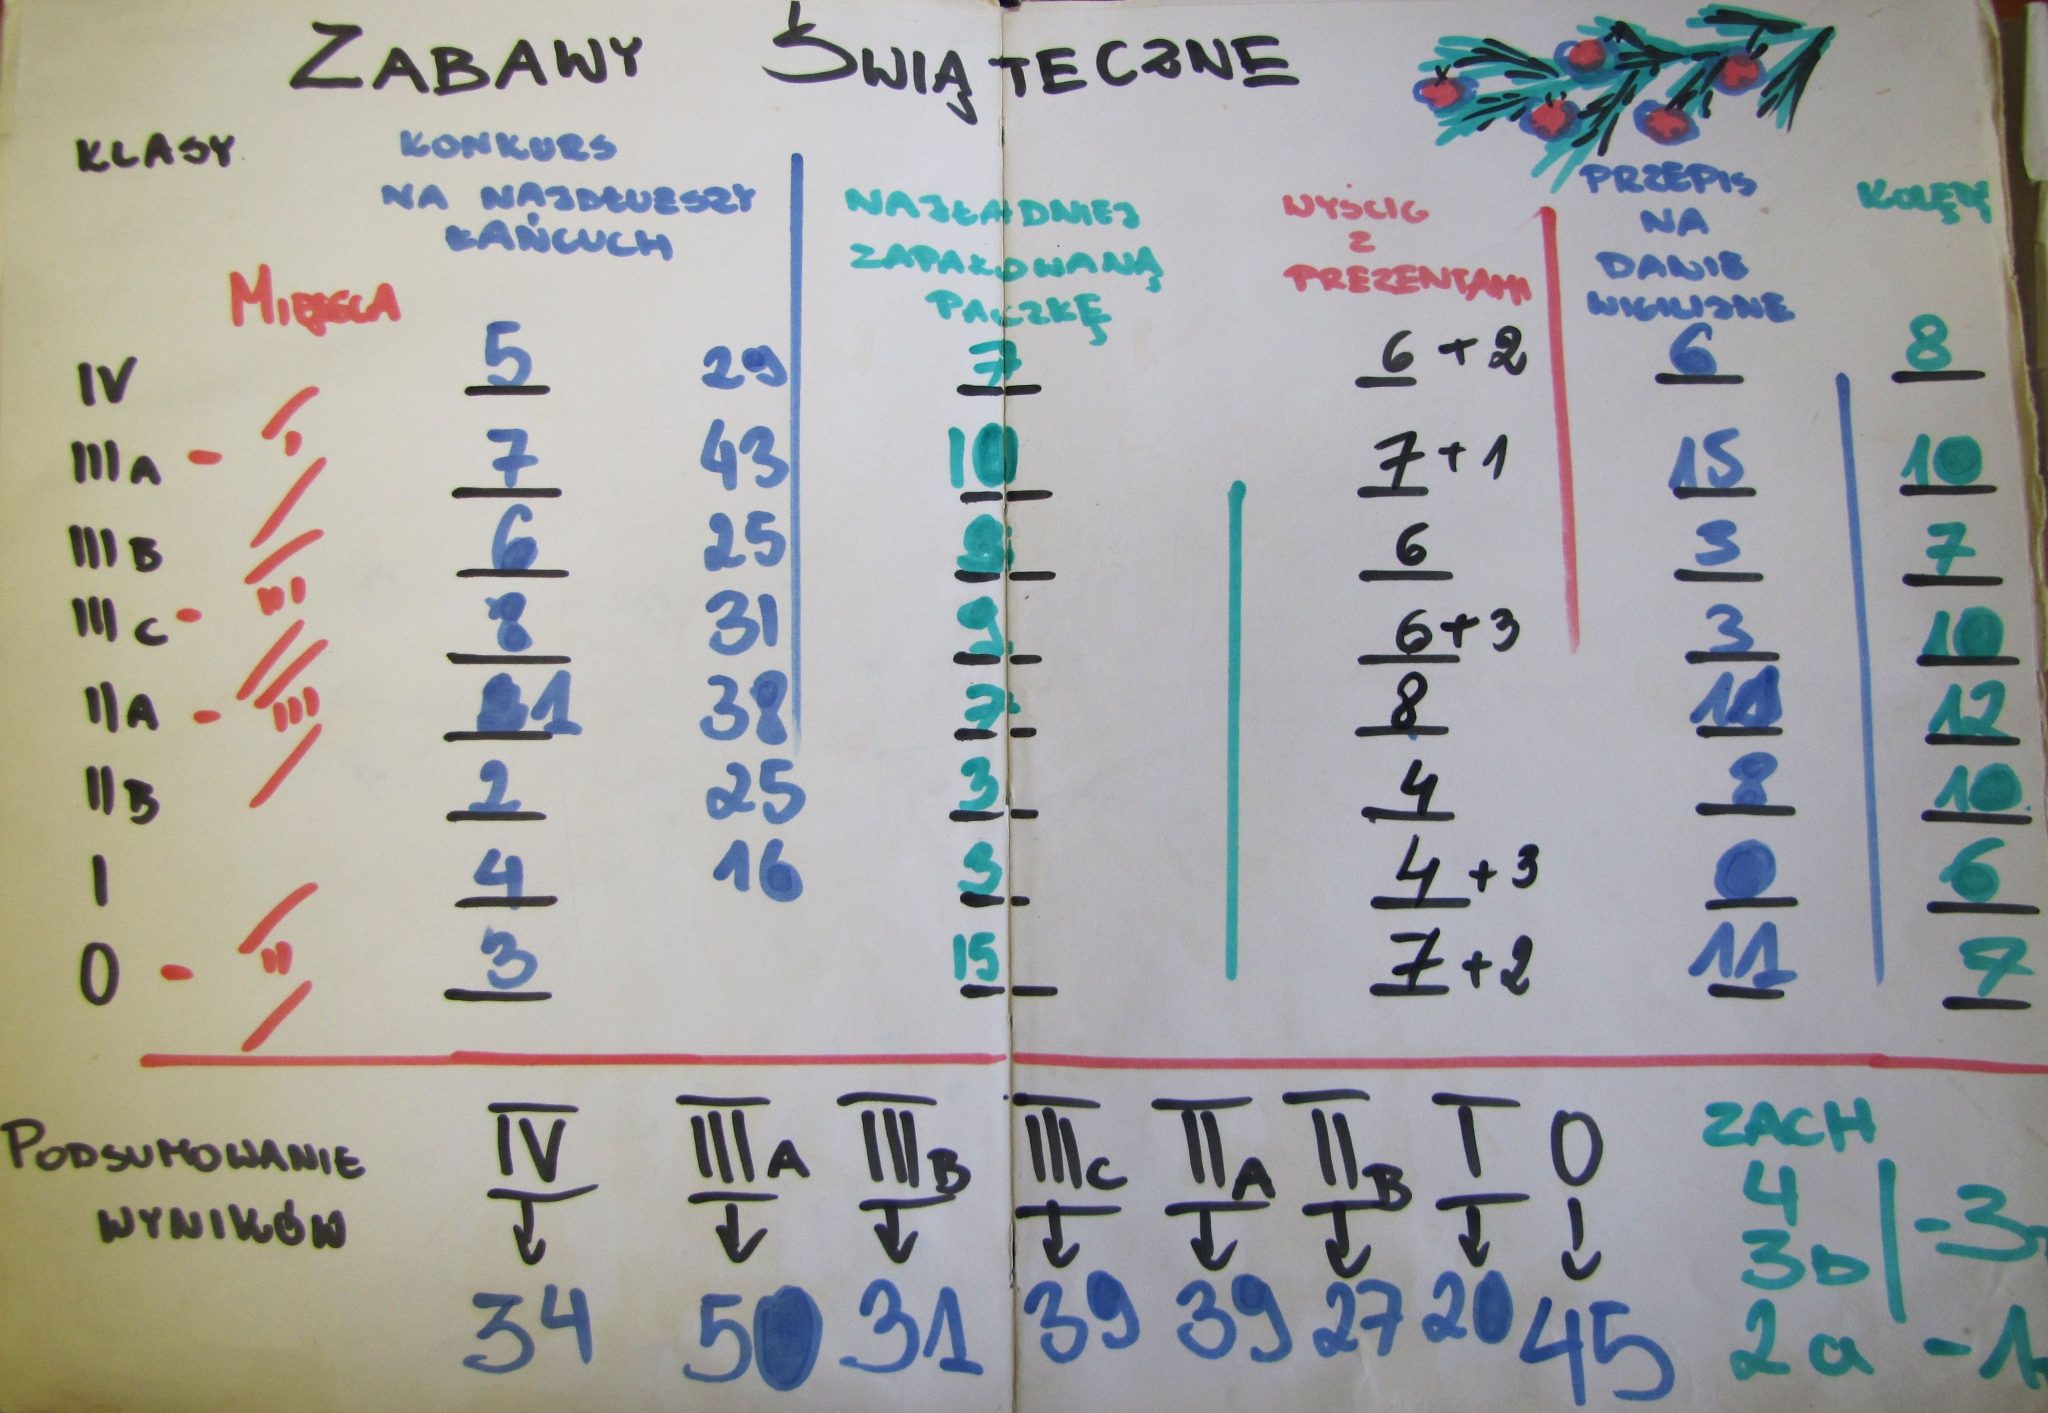 ZABAWY ŚWIĄTECZNE
KLASY
KONKURS
NA NAJDŁUŻSZY
ŁAŃCUCH
NAJŁADNIEJ
ZAPAKOWANĄ
PACZKĘ
WYŚCIG
Z
PREZENTAMI
PRZEPIS
NA
DANIE
WIGILIJNE
KOLĘDY
MIEJSCA
IV 5 29 7 6+2 6 8
IIIA - I 7 43 10 7+1 15 10
IIIB 6 25 9 6 3 7
IIIC - III 8 31 9 6+3 3 10
IIA - III 1 38 7 8 11 12
IIB 2 25 3 4 8 10
I 4 16 3 4+3 0 6
0 - II 3 15 7+2 11 7
PODSUMOWANIE
WYNIKÓW
IV IIIA IIIB IIIC IIA IIB I 0
34 50 31 39 39 27 20 45
ZACH
4
3b -3
2a -1